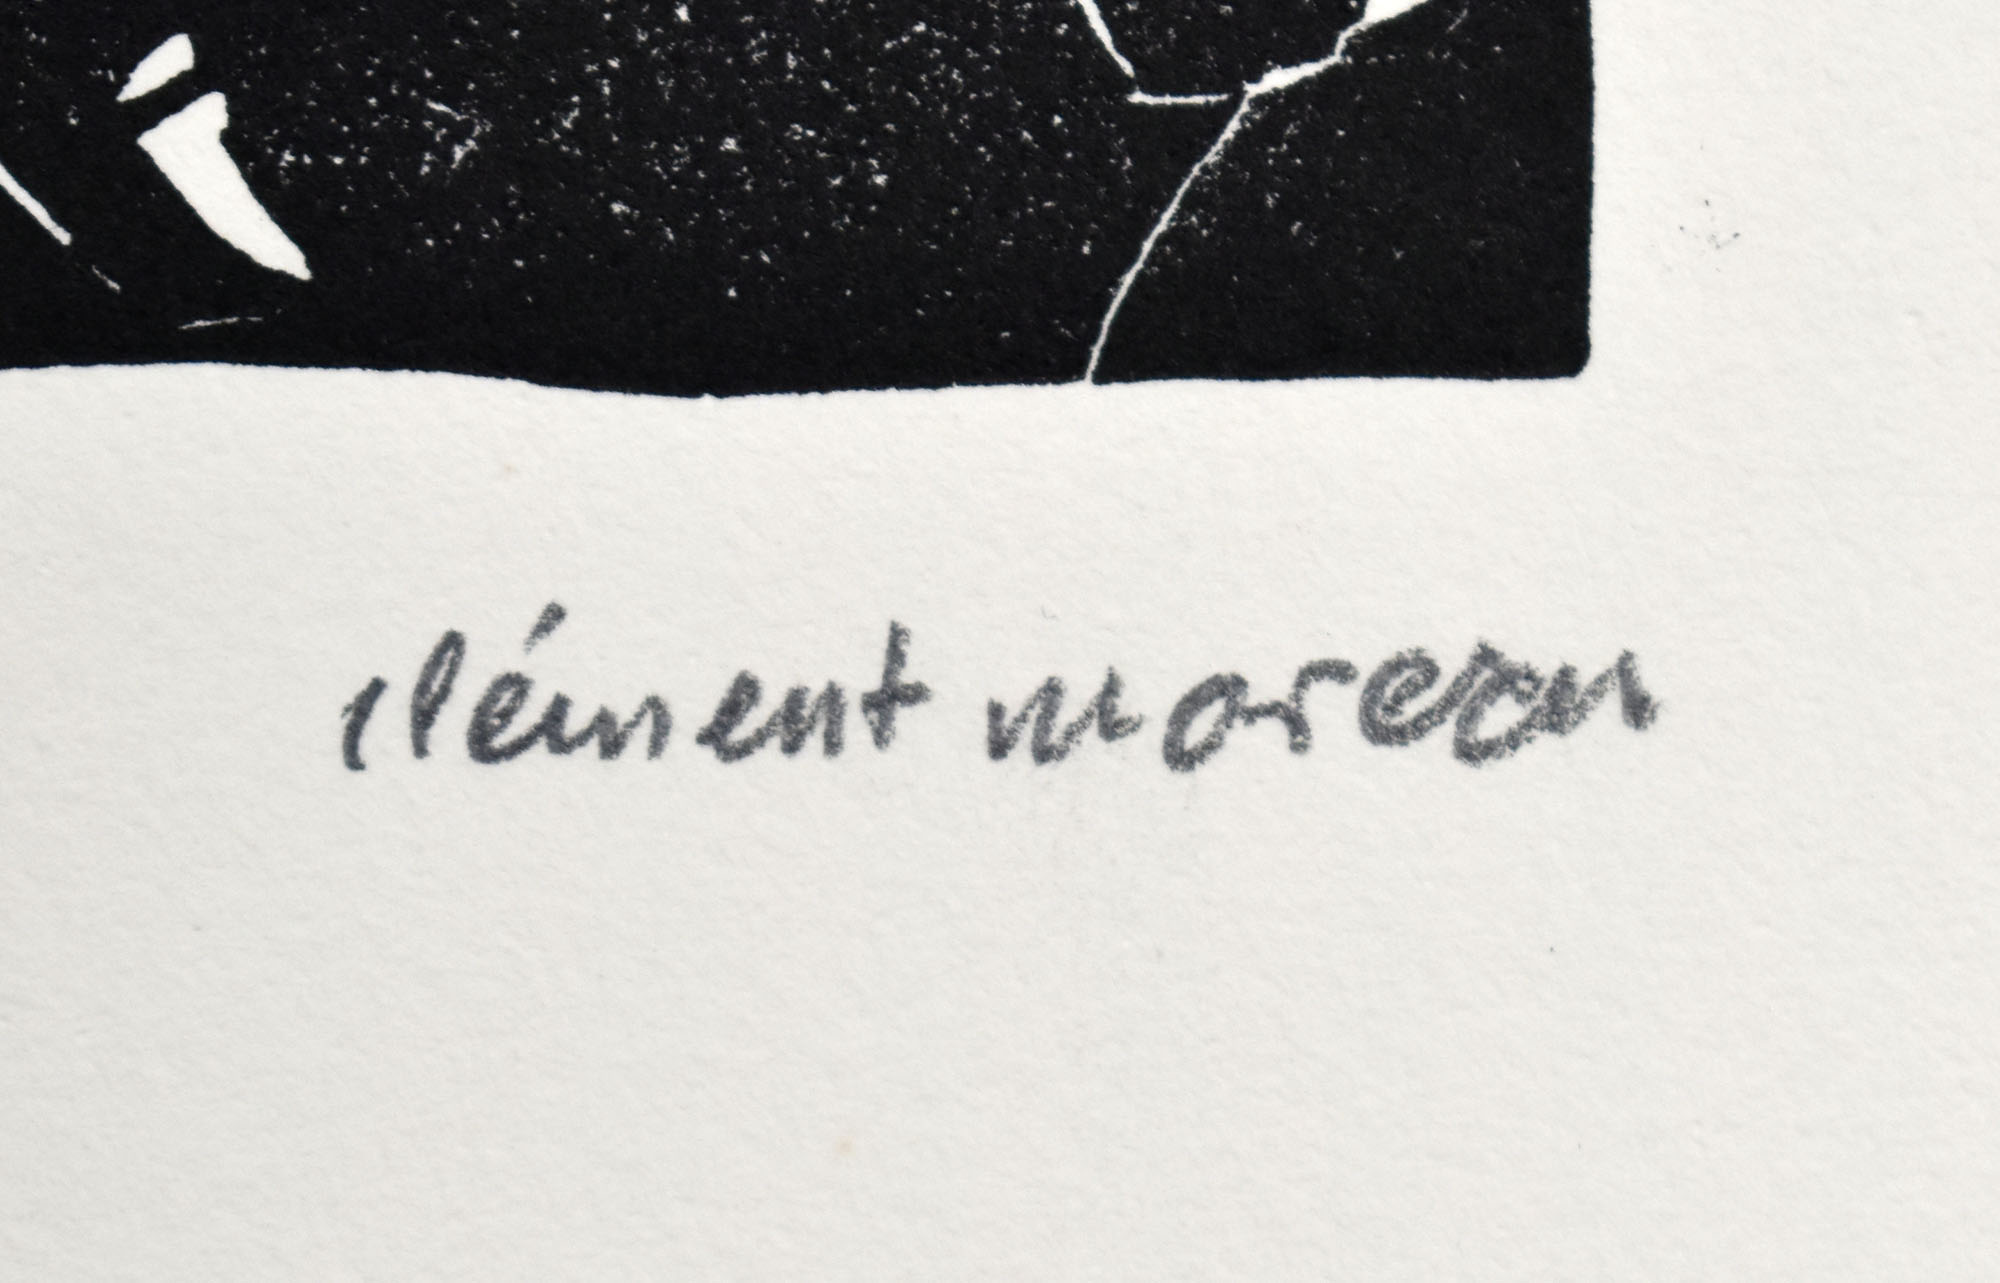 clément moreau